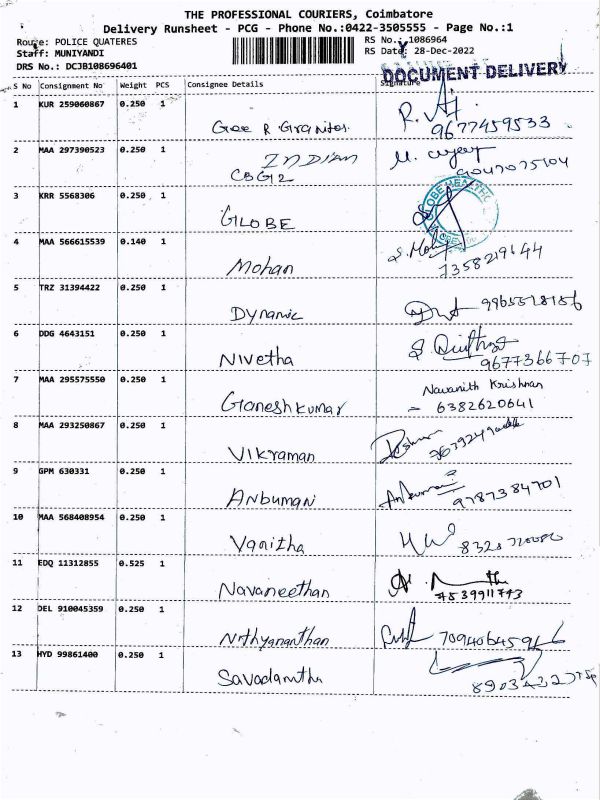 THE PROFESSIONAL COURIERS, Coimbatore
Delivery Runsheet - PCG - Phone No.:0422-3505555 - Page No.:1
Route: POLICE QUATERES
RS No.: 1086964
Staff: MUNIYANDI
RS Date: 28-Dec-2022
DRS No.: DCJB108696401
DOCUMENT DELIVERY
S No Consignment No Weight PCS Consignee Details Signature
1 KUR 259060867 0.250 1
Gee R Granites.
9677459533
2 MAA 297390523 0.250 1
INDIAN
CBG2
9047075104
3 KRR 5568306 0.250 1
GLOBE
4 MAA 566615539 0.140 1
Mohan
7358219144
5 TRZ 31394422 0.250 1
Dynamic
6 DDG 4643151 0.250 1
Nivetha
9677366707
7 MAA 295575550 0.250 1
Ganesh kumar
Navanith Krishnan
6382620641
8 MAA 293250867 0.250 1
Vikraman
9 GPM 630331 0.250 1
Anbumani
9787384701
10 MAA 568408954 0.250 1
Vanitha
11 EDQ 11312855 0.525 1
Navaneethan
7539911743
12 DEL 910045359 0.250 1
Nithyananthan
13 HYD 99861400 0.250 1